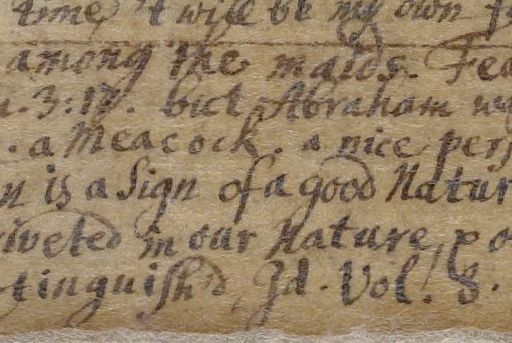 time, 't will be my own f
among the maids. Fea
.3:17. but Abraham wa
. a Meacock. a nice pers
n is a Sign of a good Natur
riveted in our Nature, po
tinguish'd, Id. Vol. 8.